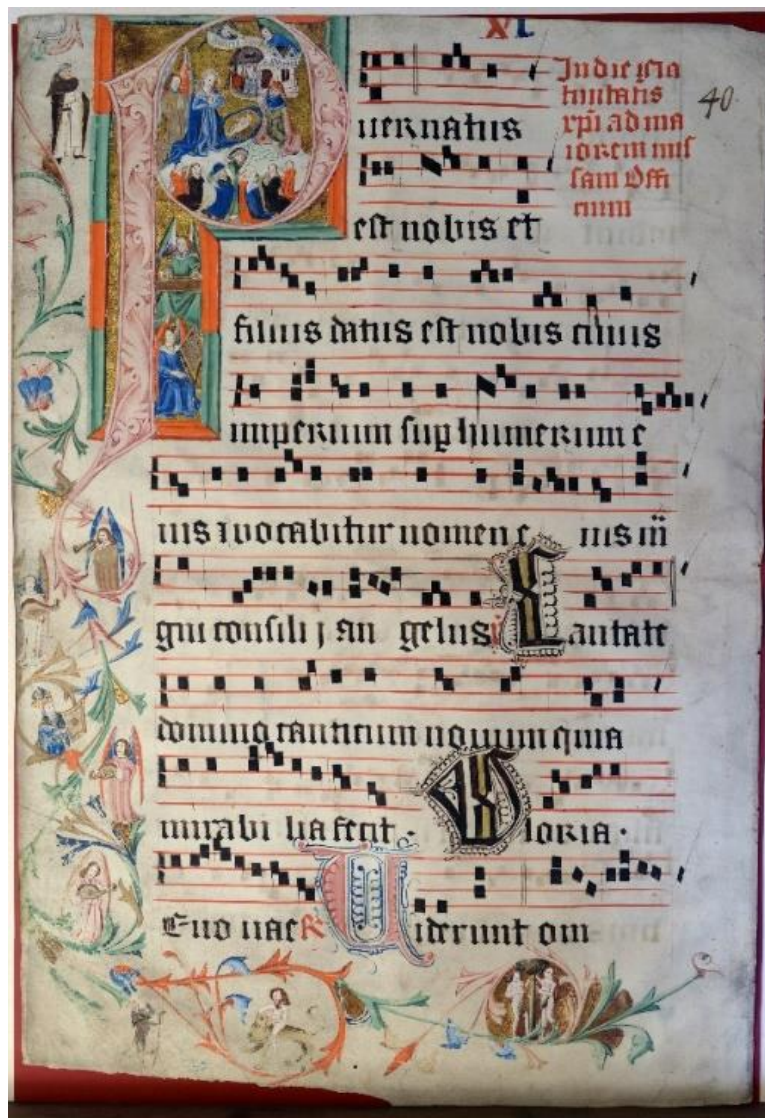 XL
In die Na
tiuitatis
xpi ad ma
iorem mis
sam Offi
cium
40
Puer natus
est nobis et
filius datus est nobis cuius
imperium sup humerum e
ius & vocabitur nomen e ius m
gni consilij an gelus Cantate
domino canticum nouum quia
mirabi lia fecit . Gloria .
Euouae R Viderunt om